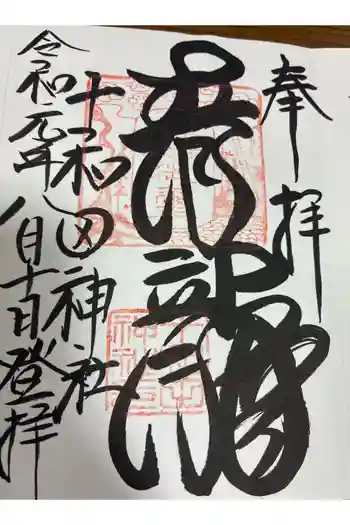 奉拝
青龍
十和田神社
令和元年
八月十日登拝